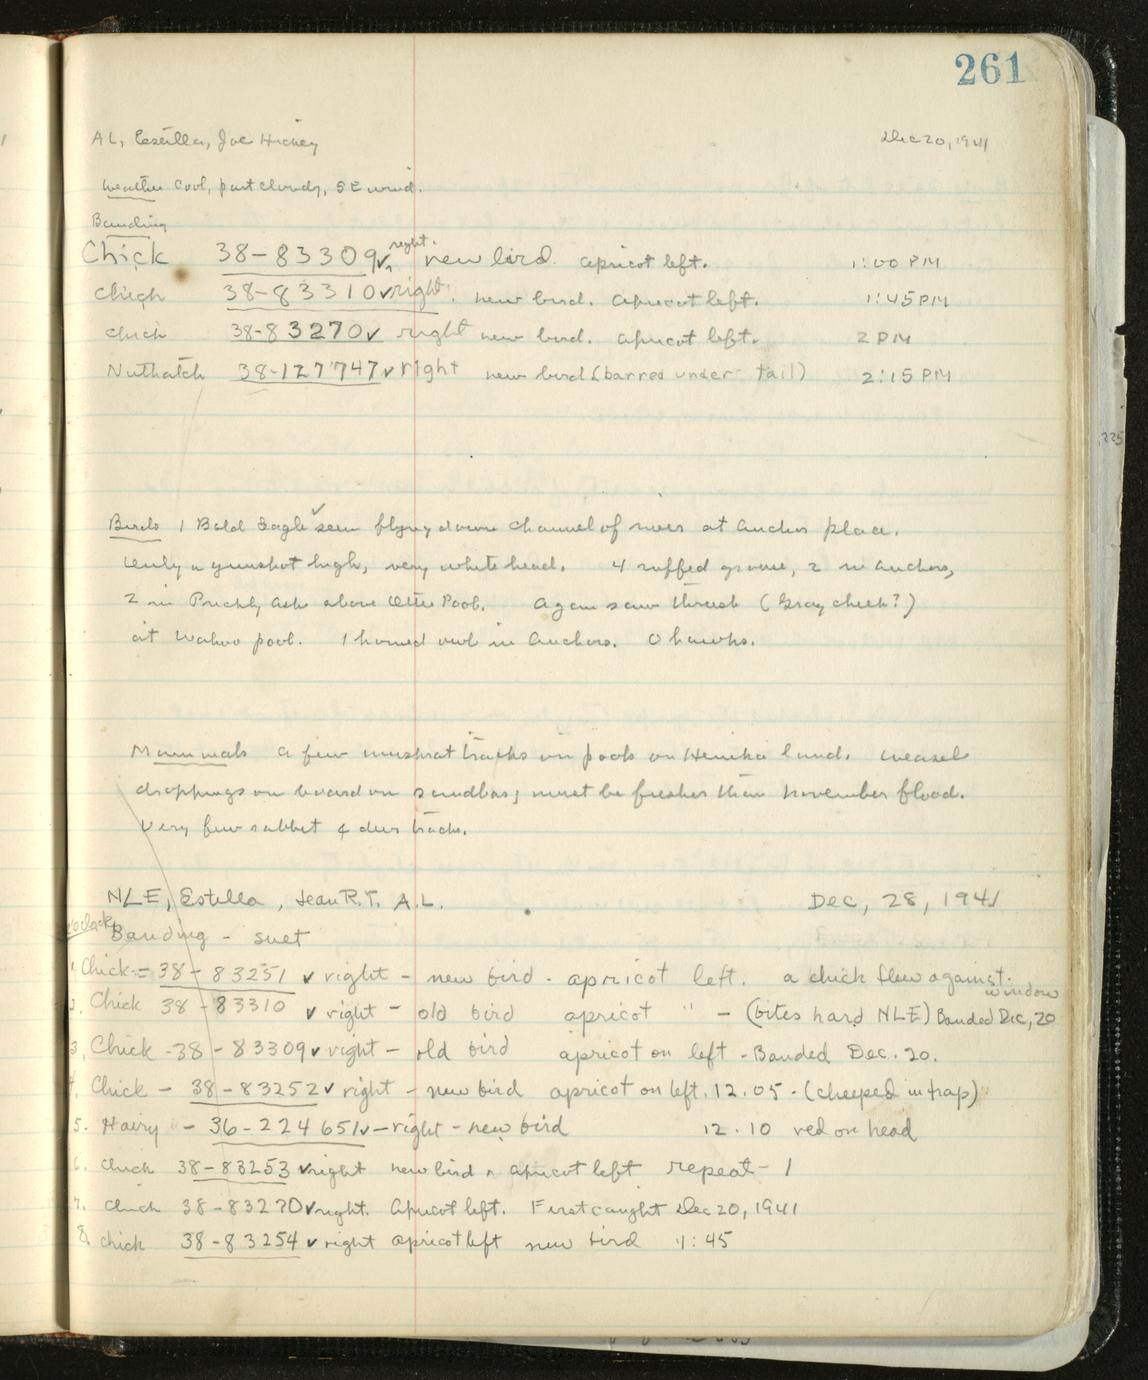 261
AL, Estella, Joe Hickey Dec 20, 1941
Weather Cool, part cloudy, SE wind.
Banding
Chick 38-83309 ✓ right. new bird. apricot left. 1:00 PM
Chick 38-83310 ✓ right. new bird. apricot left. 1:45 PM
Chick 38-83270 ✓ right new bird. apricot left. 2 PM
Nuthatch 38-127747 ✓ right new bird (barred under tail) 2:15 PM
Birds 1 Bald Eagle ✓ seen flying down channel of river at Anchor place.
Only a gunshot high, very white head. 4 ruffed grouse, 2 in Anchors,
2 in Prickly Ash above Otter Pool. Again saw thrush (Gray cheek?)
at Wahoo pool. 1 horned owl in Anchors. 0 hawks.
Mammals a few muskrat tracks on pools on Henika land. Weasel
droppings on board on sandbar; must be fresher than November flood.
Very few rabbit & deer tracks.
NLE, Estella, Jean R.T. A.L. Dec, 28, 1941
o'clock
Banding - suet
1. Chick - 38-83251 ✓ right - new bird - apricot left. a chick flew against window
2. Chick 38-83310 ✓ right - old bird apricot " - (bites hard NLE) Banded Dec, 20
3. Chick - 38-83309 ✓ right - old bird apricot on left - Banded Dec. 20.
4. Chick - 38-83252 ✓ right - new bird apricot on left. 12.05 - (cheeped in trap)
5. Hairy - 36-224651 ✓ - right - new bird 12.10 red on head
6. chick 38-83253 ✓ right new bird apricot left repeat - 1
7. chick 38-83270 ✓ right. Apricot left. First caught Dec 20, 1941
8. chick 38-83254 ✓ right apricot left new bird 1:45